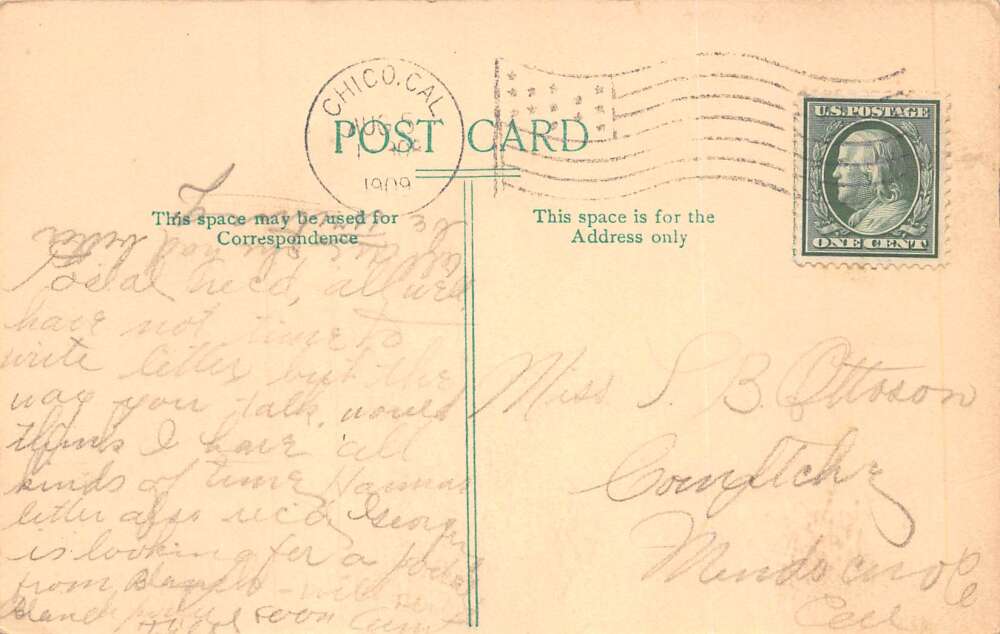 CHICO, CAL.
AUG 5
1909
POST CARD
U.S. POSTAGE
ONE CENT
This space may be used for
Correspondence
This space is for the
Address only
Postal rec'd, all well
have not time to
write letter but the
way you talk, would
think I have all
kinds of time, Hannas
letter also rec'd, George
is looking for a postal
from
soon
Miss S. B. Ottoson
Comptche
Mendocino Co
Cal